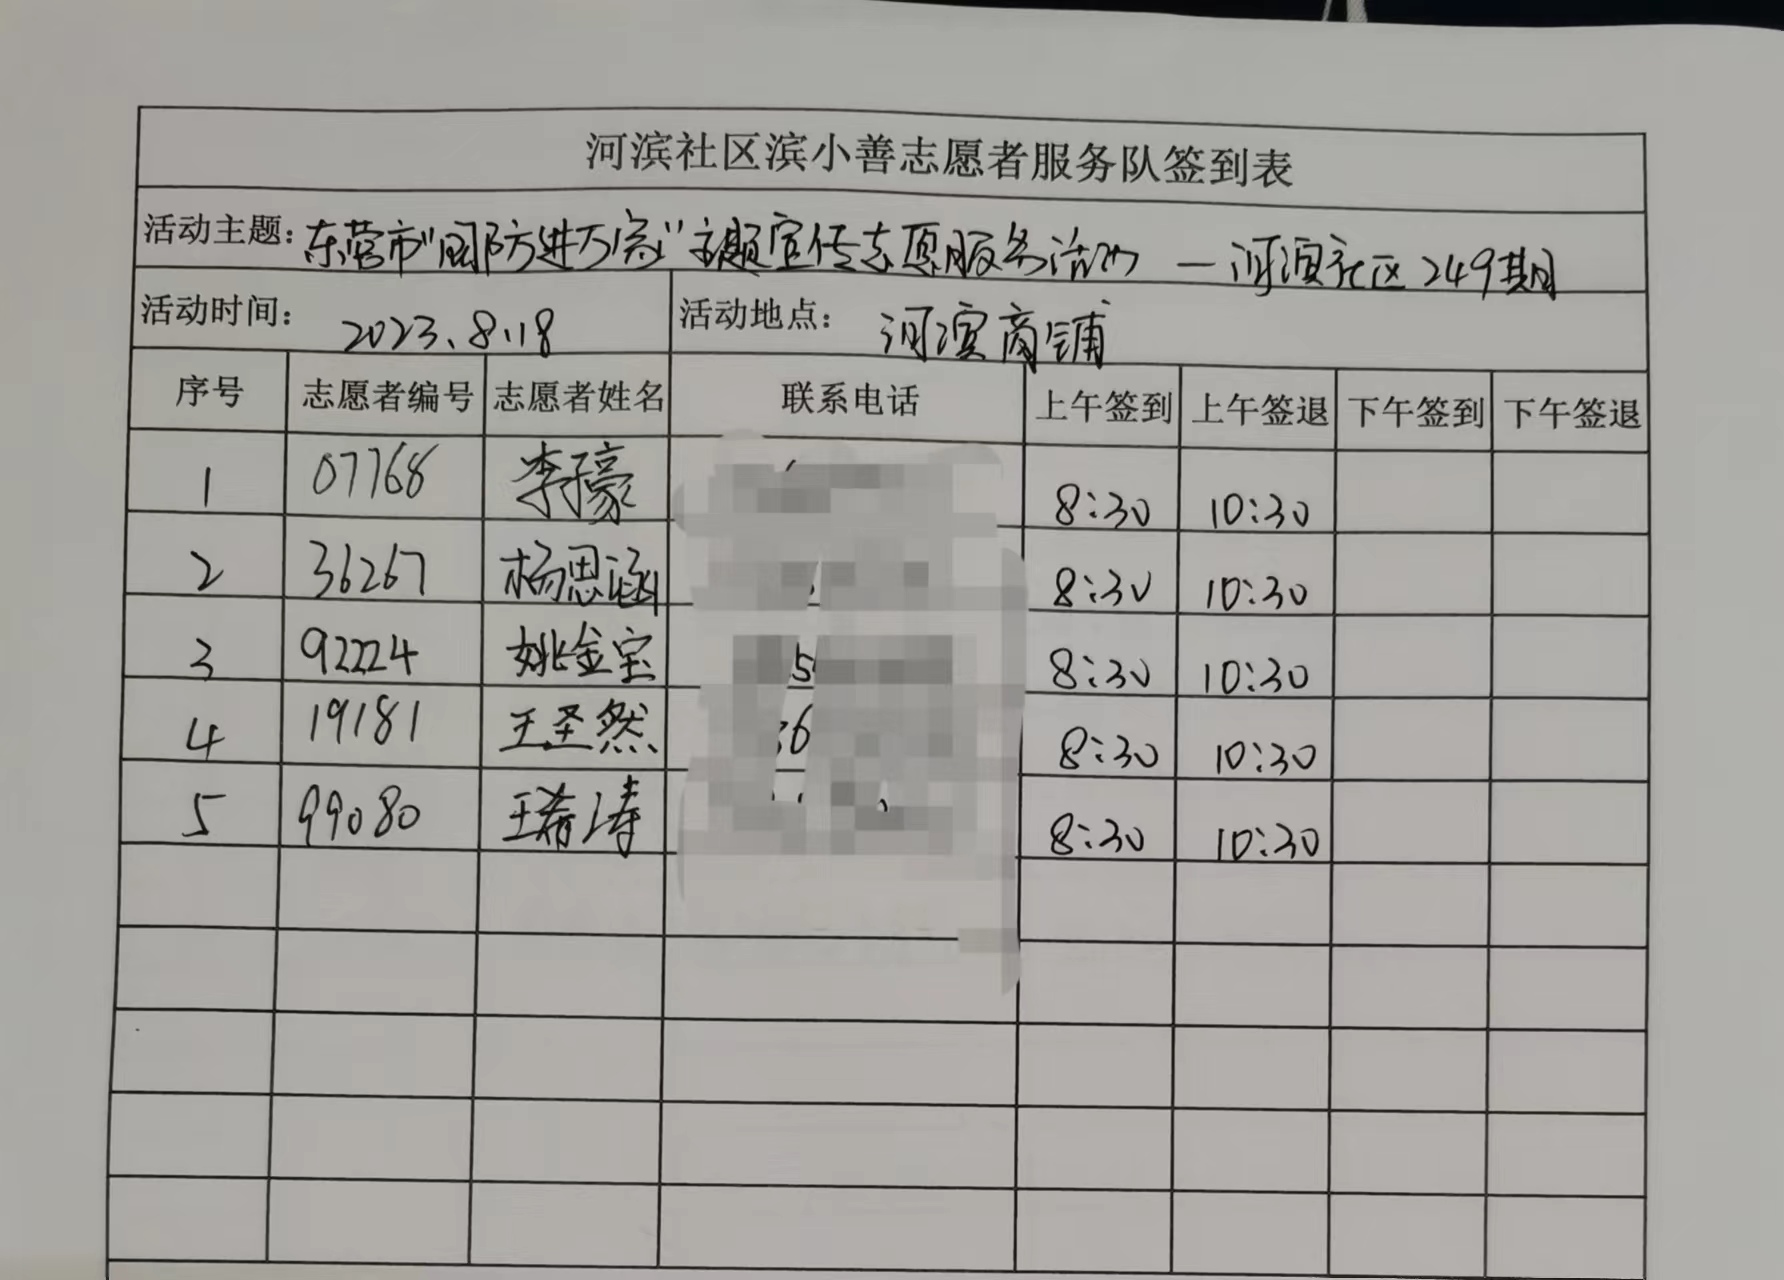 河滨社区滨小善志愿者服务队签到表
活动主题：东营市“国防进万家”主题宣传志愿服务活动 — 河滨社区249期
活动时间： 2023.8.18 活动地点： 河滨商铺
序号 志愿者编号 志愿者姓名 联系电话 上午签到 上午签退 下午签到 下午签退
1 07768 李子豪 8:30 10:30
2 36267 杨思涵 8:30 10:30
3 92224 姚金宝 8:30 10:30
4 19181 王圣然 8:30 10:30
5 99080 王希涛 8:30 10:30